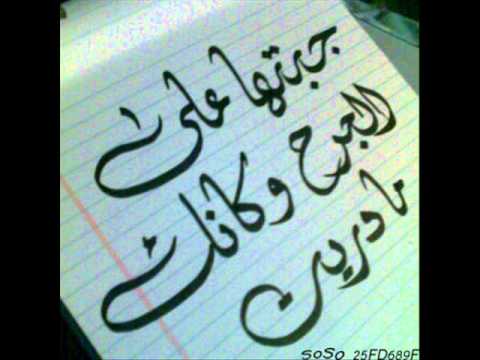 جبتها على
الجرح وكانك
مادريت
soSo 25FD689F